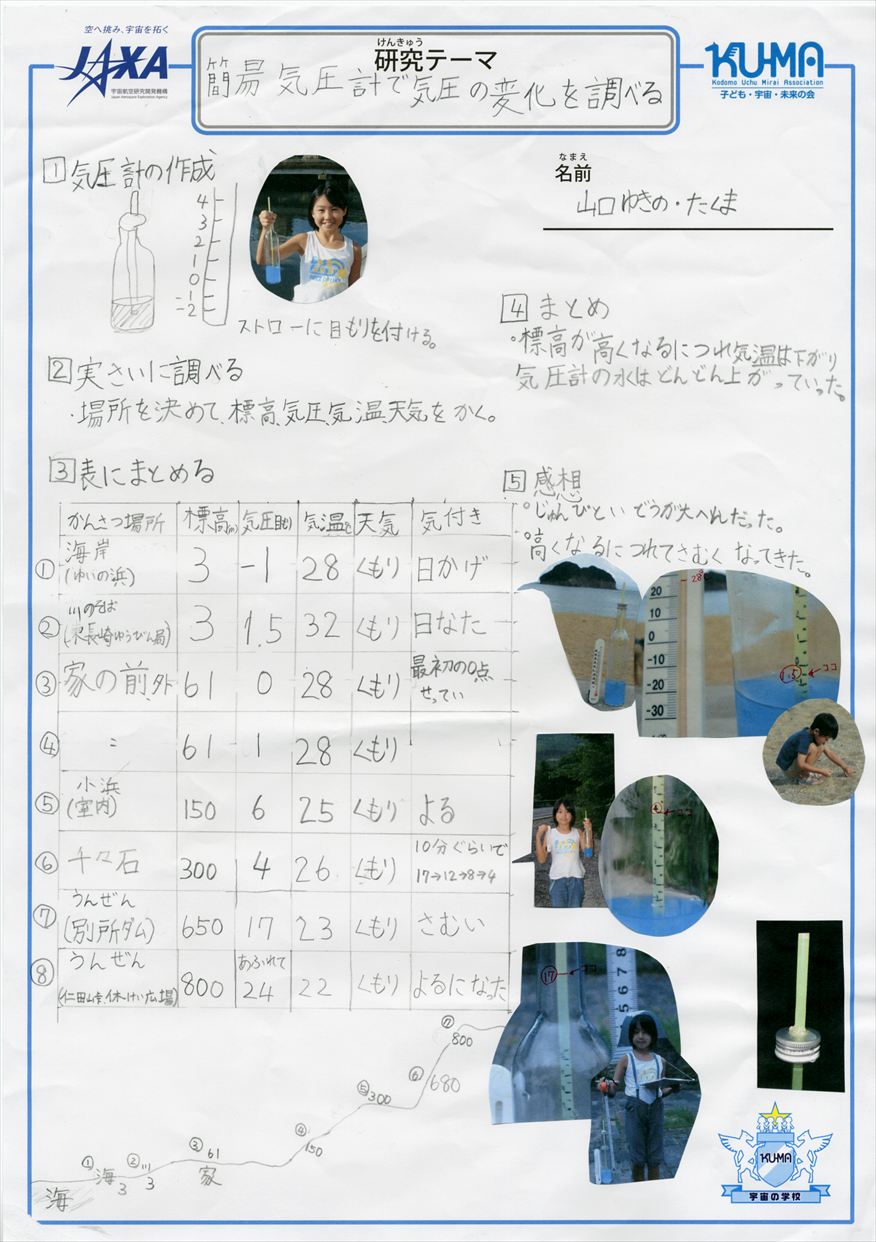 空へ挑み、宇宙を拓く
JAXA
宇宙航空研究開発機構
Japan Aerospace Exploration Agency
けんきゅう
研究テーマ
簡易気圧計で気圧の変化を調べる
KU-MA
Kodomo Uchu Mirai Association
子ども・宇宙・未来の会
なまえ
名前
山口ゆきの・たくま
1 気圧計の作成
4
3
2
1
0
-1
-2
ストローに目もりを付ける。
2 実さいに調べる
・場所を決めて、標高、気圧、気温、天気をかく。
3 表にまとめる
かんさつ場所 標高(m) 気圧(目もり) 気温℃ 天気 気付き
① 海岸(ゆいの浜) 3 -1 28 くもり 日かげ
② 川のそば(東長崎ゆうびん局) 3 1.5 32 くもり 日なた
③ 家の前、外 61 0 28 くもり 最初の0点せってい
④ 〃 61 1 28 くもり
⑤ 小浜(室内) 150 6 25 くもり よる
⑥ 千々石 300 4 26 くもり 10分ぐらいで17→12→8→4
⑦ うんぜん(別所ダム) 650 17 23 くもり さむい
⑧ うんぜん(仁田峠、休けい広場) 800 あふれて24 22 くもり よるになった
① 海 3
② 川 3
③ 61 家
④ 150
⑤ 300
⑥ 680
⑦ 800
海
4 まとめ
・標高が高くなるにつれ気温は下がり
気圧計の水はどんどん上がっていった。
5 感想
・じゅんびといどうが大へんだった。
・高くなるにつれてさむくなってきた。
28℃
20
10
0
-10
-20
-30
1.5 ←ココ
④ ←ココ
⑰ ←ココ
5 6 7 8
KU-MA
宇宙の学校